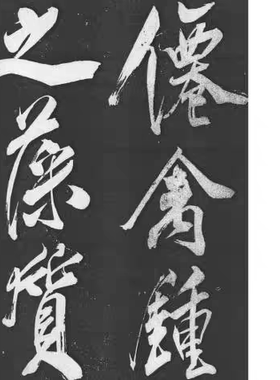 僊禽鍾
之藻質